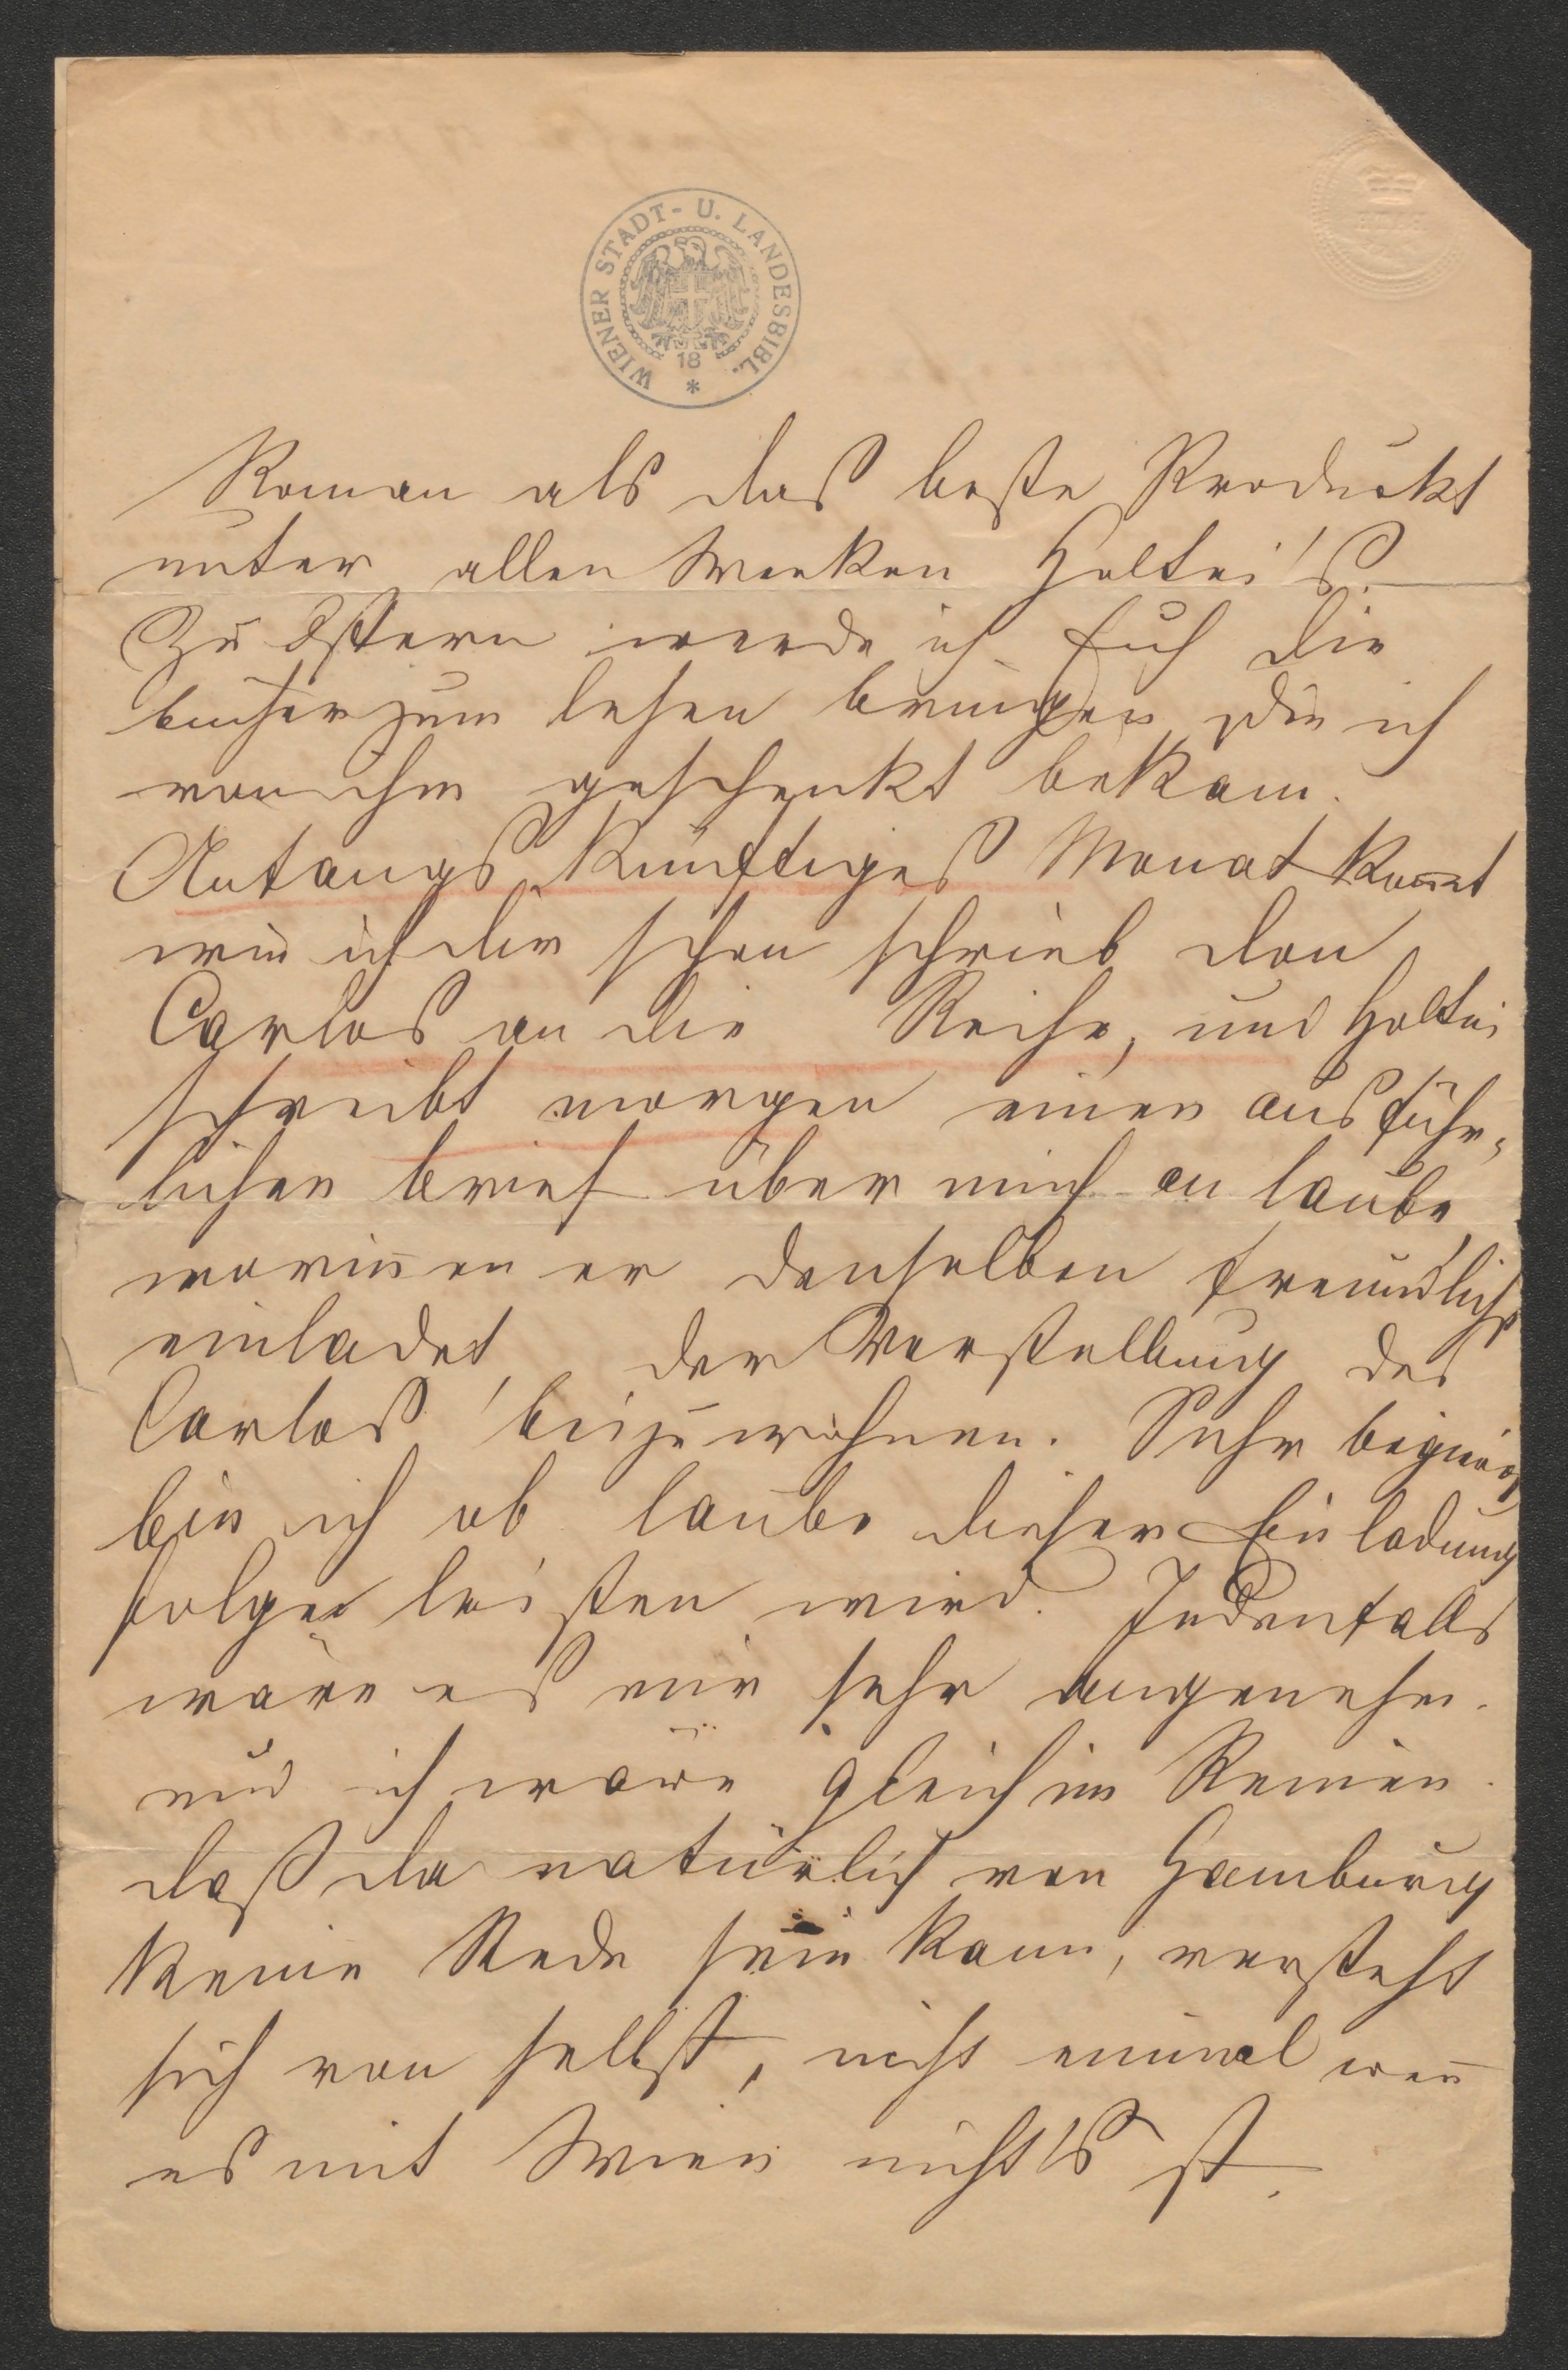 WIENER STADT- U. LANDESBIBL.
18
*
Roman als das beste Produckt
unter allen Werken Holtei's.
Zu Ostern werde ich Euch die
bücher zum lesen bringen die ich
von ihm geschenkt bekam.
Anfangs künftiges Monat kom̄t
wie ich dir schon schrieb don
Carlos an die Reihe, und Holtei
schreibt morgen einen ausführ-
lichen brief über mich an laube,
worin̄en er denselben freundlichst
einladet, der Vorstellung des
Carlos beizuwohnen. Sehr begierig
bin ich ob laube dieser Einladung
folge leisten wird. Jedenfalls
wäre es mir sehr angenehm.
und ich wäre gleich im Reinen.
daß da natürlich von Hamburg
keine Rede sein kann, versteht
sich von selbst, nicht einmal wen̄
es mit Wien nichts ist.